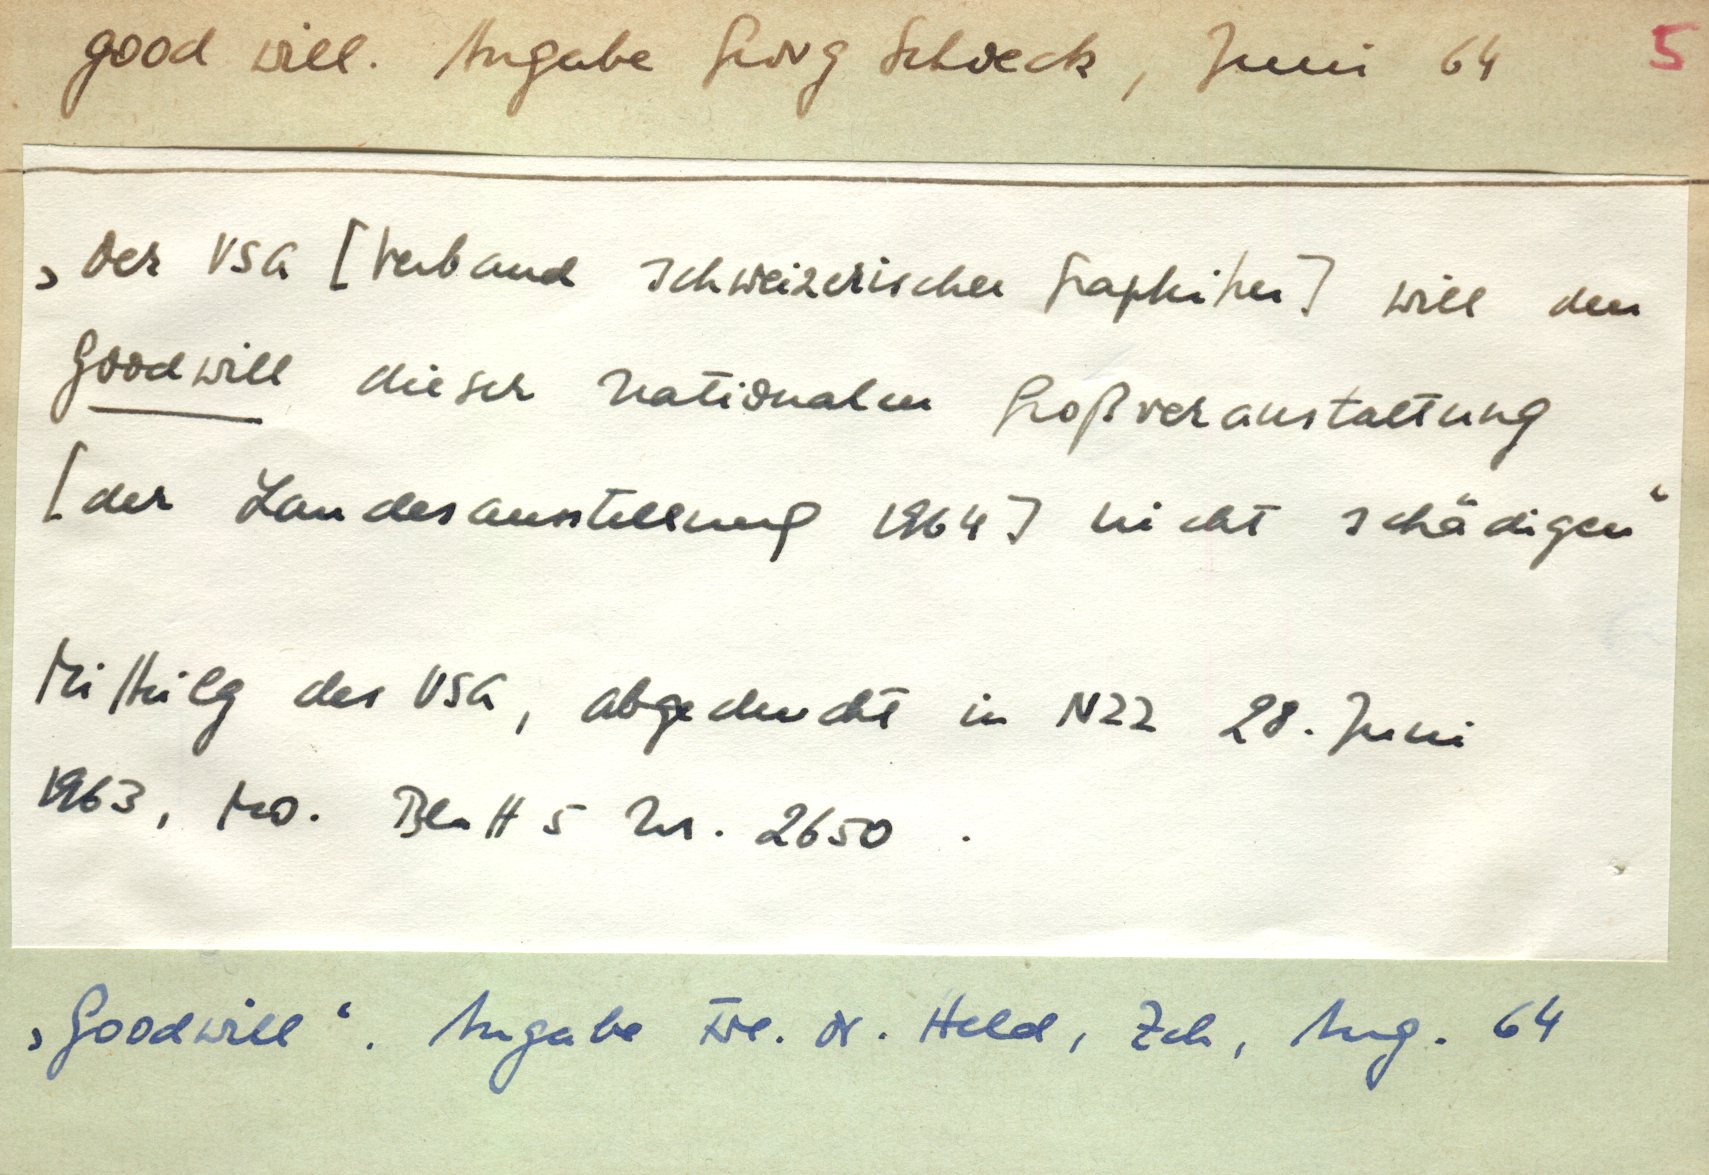 good will. Angabe Georg Schoeck, Juni 64 5
„Der VSG [Verband schweizerischer Graphiker] will den
Goodwill dieser nationalen Großveranstaltung
[der Landesausstellung 1964] nicht schädigen“
Mitteilg des VSG, abgedruckt in NZZ 28. Juni
1963, Mo. Blatt 5 Nr. 2650.
„Goodwill“. Angabe Frl. N. Held, Zch, Aug. 64